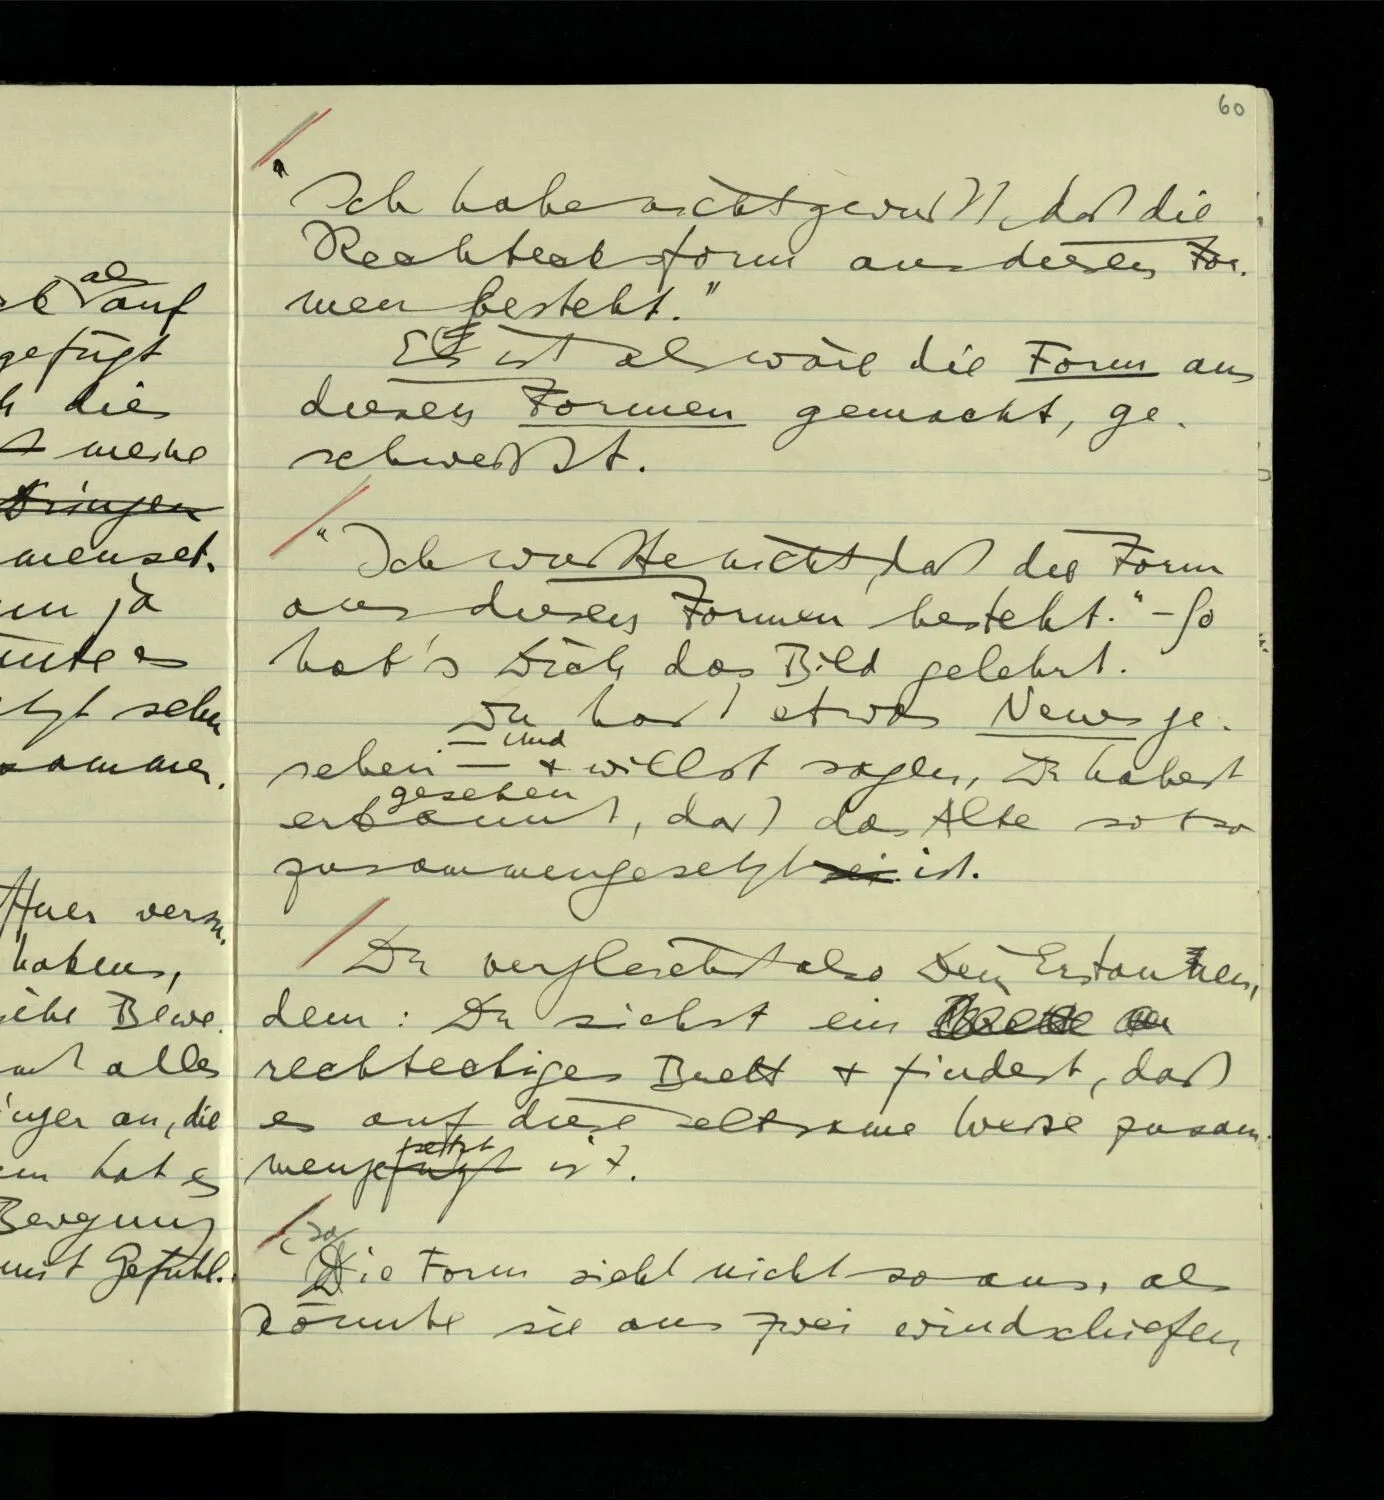 60
"Ich habe nicht gewußt, daß die
Rechtecksform aus diesen For-
men besteht."
Es ist als wäre die Form aus
diesen Formen gemacht, ge-
schweißt.
"Ich wußte nicht, daß die Form
aus diesen Formen besteht." – So
hat's Dich das Bild gelehrt.
Du hast etwas Neues ge-
sehen — + willst sagen, Du habest
und
gesehen
erkannt, daß das Alte so + so
zusammengesetzt sei ist.
Du vergleichst also Dein Erstaunen,
dem: Du siehst ein
rechteckiges Brett + findest, daß
es auf diese seltsame Weise zusam-
setzt
mengefügt ist.
"so
Die Form sieht nicht so aus, als
könnte sie aus zwei windschiefen
als
auf
gefügt
dies
meine
menset-
ja
sehn
haben,
Bewe-
alles
an, die
hat es
Bewegung
mit Gefühl.